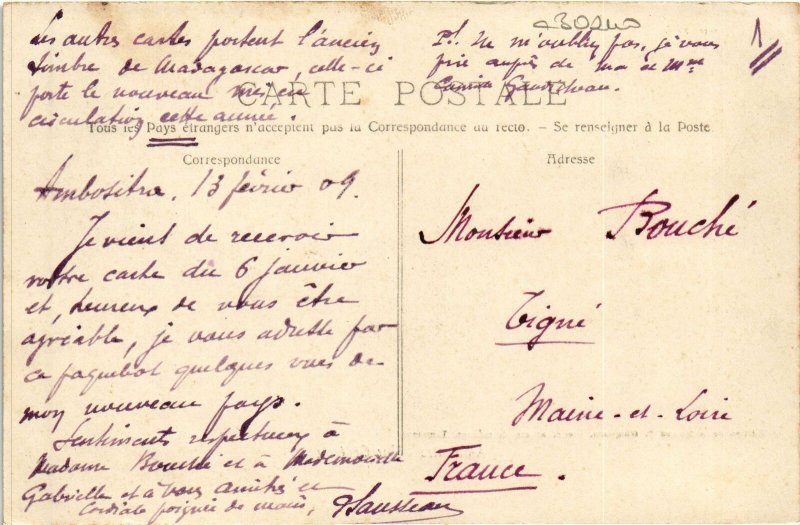 Les autres cartes portent l'ancien
timbre de Madagascar, celle-ci
porte le nouveau mis en
circulation cette année.
P.S. Ne m'oubliez pas, je vous
prie auprès de M. et Mme
1
CARTE POSTALE
Tous les Pays étrangers n'acceptent pas la Correspondance au recto. - Se renseigner à la Poste.
Correspondance
Ambositra. 13 février 09.
Je vient de recevoir
votre carte du 6 janvier
et, heureux de vous être
agréable, je vous adresse par
ce paquebot quelques vues de
mon nouveau pays.
Sentiments respectueux à
Madame Bouché et à Mademoiselle
Gabrielle et à vous amitiés et
cordiale poignée de mains,
Adresse
Monsieur Bouché
Tigné
Maine-et-Loire
France.